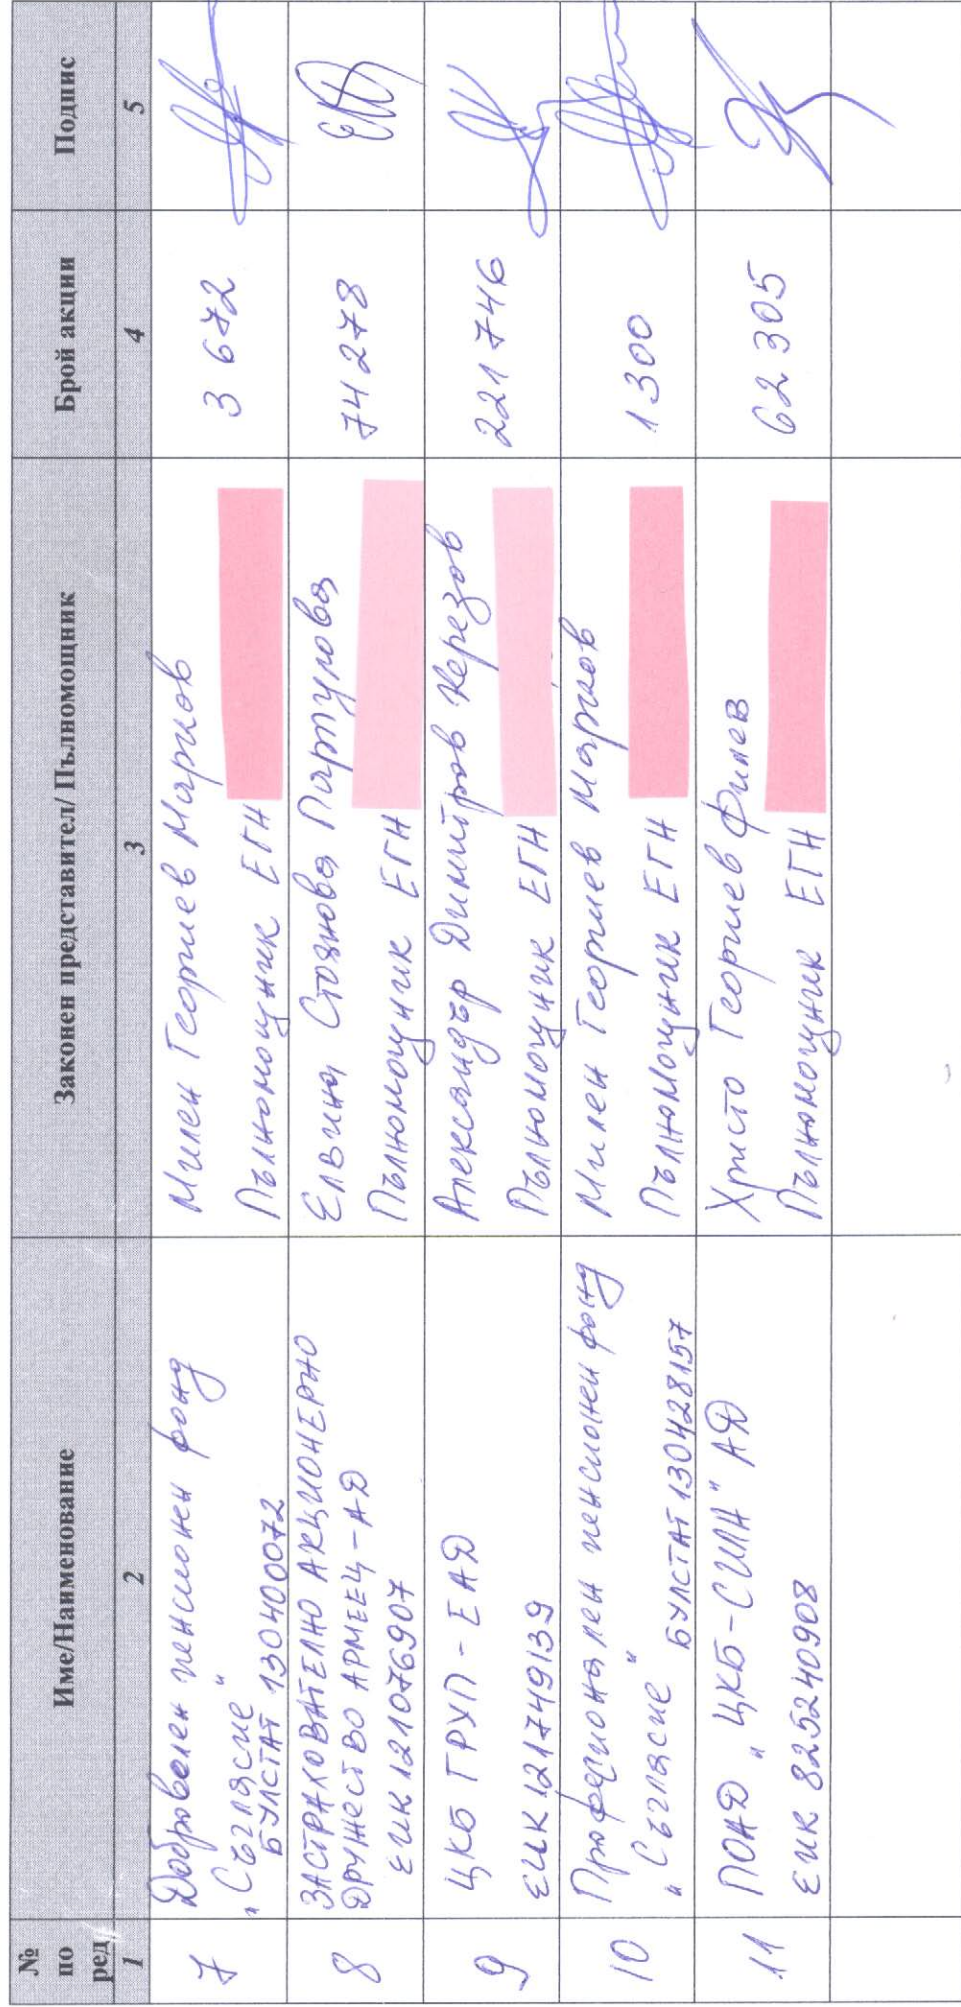 № по ред
Име/Наименование
Законен представител/ Пълномощник
Брой акции
Подпис
1
2
3
4
5
7
Доброволен пенсионен фонд
„Съгласие"
БУЛСТАТ 130400072
Милен Георгиев Марков
Пълномощник ЕГН
3 672
8
ЗАСТРАХОВАТЕЛНО АКЦИОНЕРНО
ДРУЖЕСТВО АРМЕЕЦ - АД
ЕИК 121076907
Елвина Стоянова
Пълномощник ЕГН
74 278
9
ЦКБ ГРУП - ЕАД
ЕИК 121749139
Александър Димитров Керезов
Пълномощник ЕГН
221 746
10
Професионален пенсионен фонд
„Съгласие"
БУЛСТАТ 130428157
Милен Георгиев Марков
Пълномощник ЕГН
1 300
11
ПОАД „ЦКБ-СИЛА" АД
ЕИК 825240908
Христо Георгиев Филев
Пълномощник ЕГН
62 305